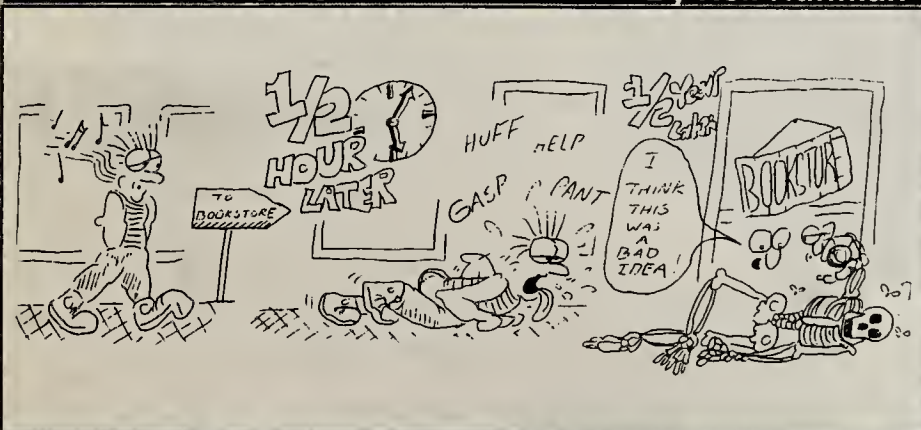 TO
BOOKSTORE
1/2
HOUR
LATER
HUFF
HELP
GASP
PANT
1/2 Year
Later
I
THINK
THIS
WAS
A
BAD
IDEA!
BOOKSTORE